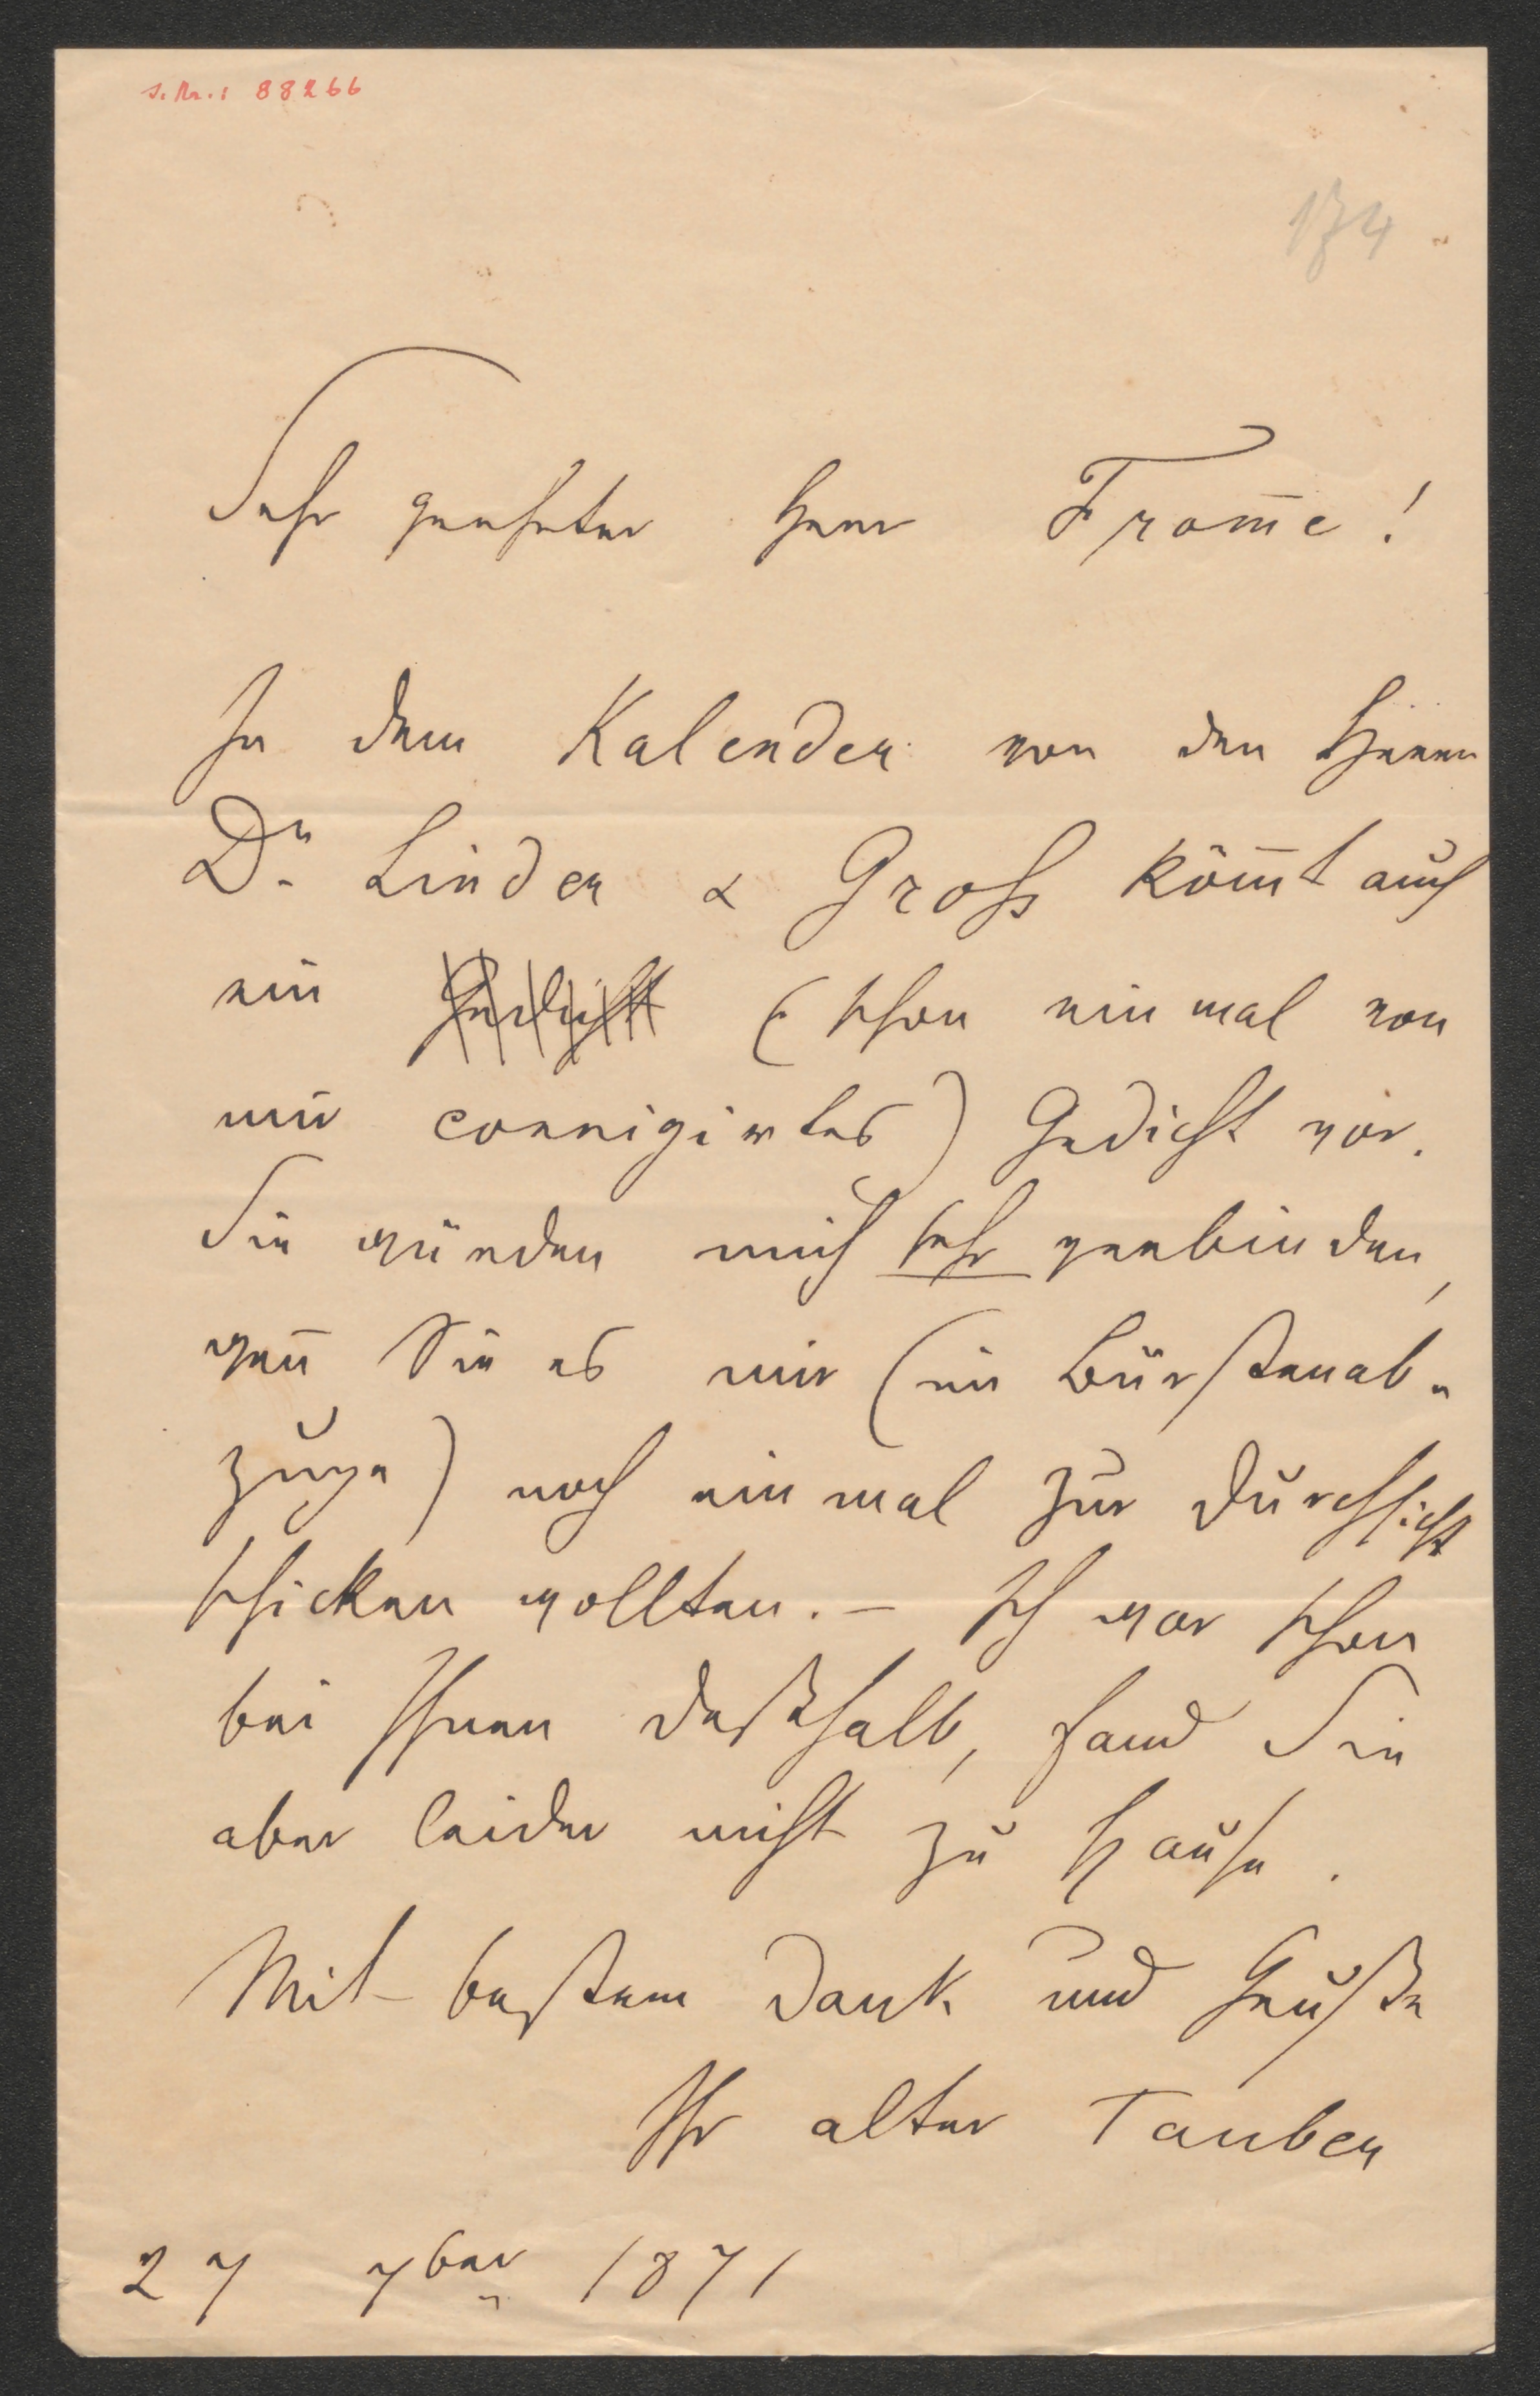 J. Nr.: 88266
174
Sehr geehrter Herr From̄e!
In dem Kalender von den Herrn
Dr. Linder & Groß köm̄t auch
ein Gedicht (schon einmal von
mir corrigirtes) Gedicht vor.
Sie würden mich sehr verbinden,
wen̄ Sie es mir (im Bürstenab-
zuge) noch einmal zur Durchsicht
schicken wollten. – Ich war schon
bei Ihnen deßhalb, fand Sie
aber leider nicht zu Hause.
Mit bestem Dank und Gruße
Ihr alter Tauber
27 7ber 1871